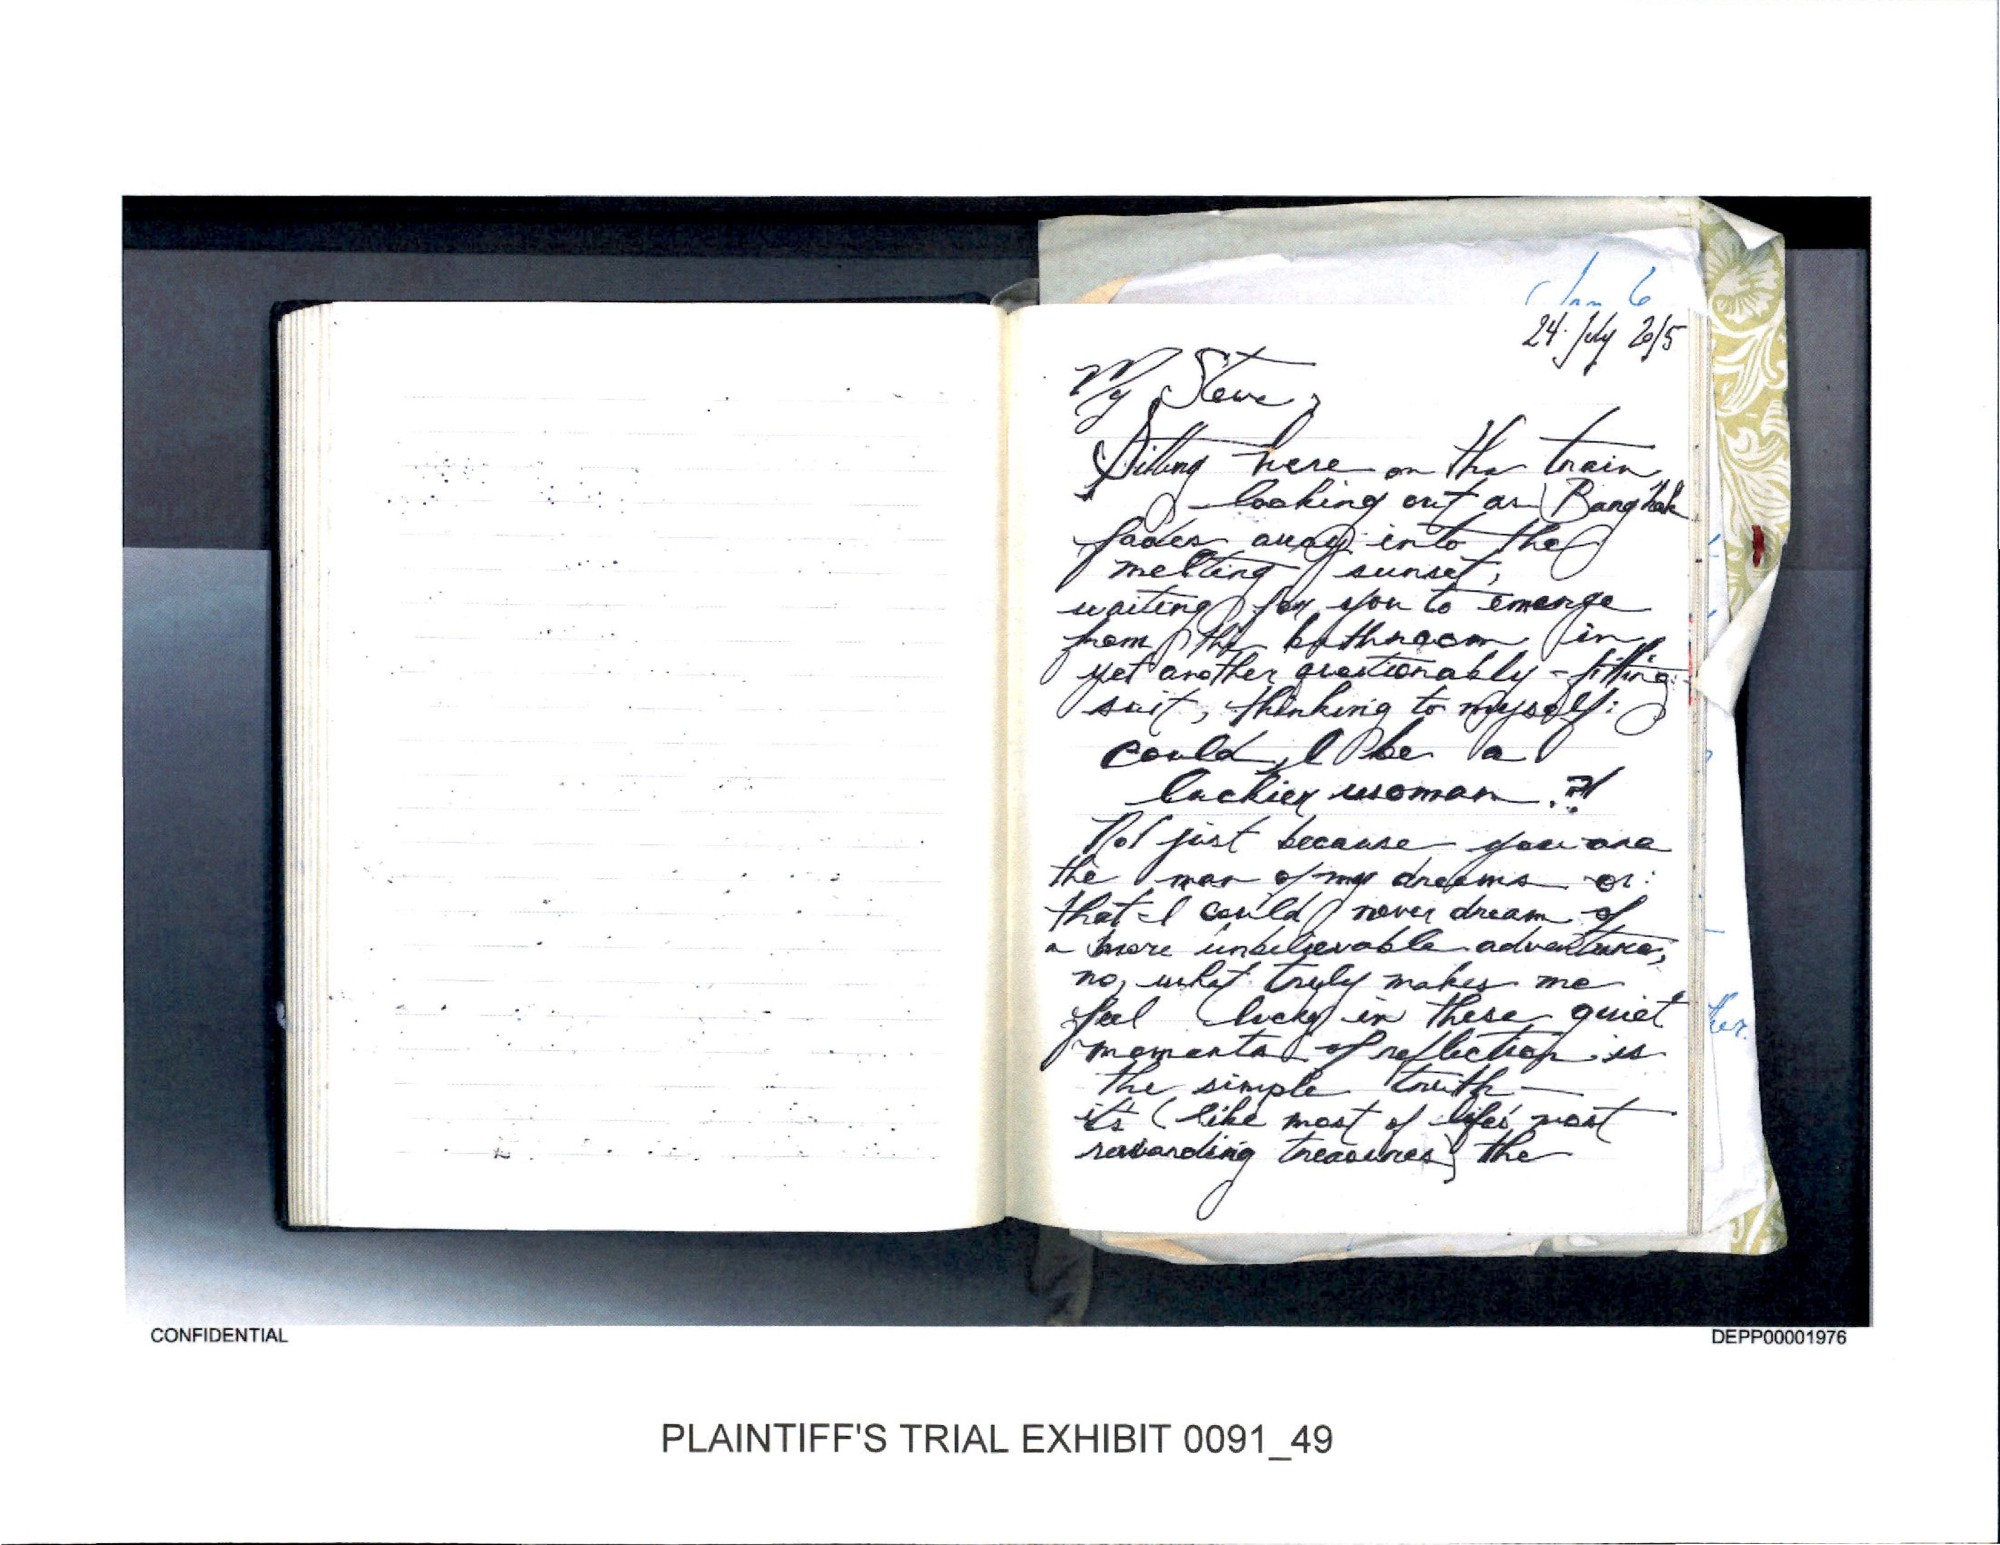 Jan 6
24 July 2015
My Steve,
Sitting here on the train,
looking out as Bangkok
fades away into the
melting sunset,
waiting for you to emerge
from the bathroom in
yet another questionably-fitting
suit, thinking to myself:
could I be a
luckier woman?!
Not just because you are
the man of my dreams or
that I could never dream of
a more unbelievable adventure;
no, what truly makes me
feel lucky in these quiet
moments of reflection is
the simple truth—
it's (like most of life's most
rewarding treasures) the
her.
CONFIDENTIAL
DEPP00001976
PLAINTIFF'S TRIAL EXHIBIT 0091_49